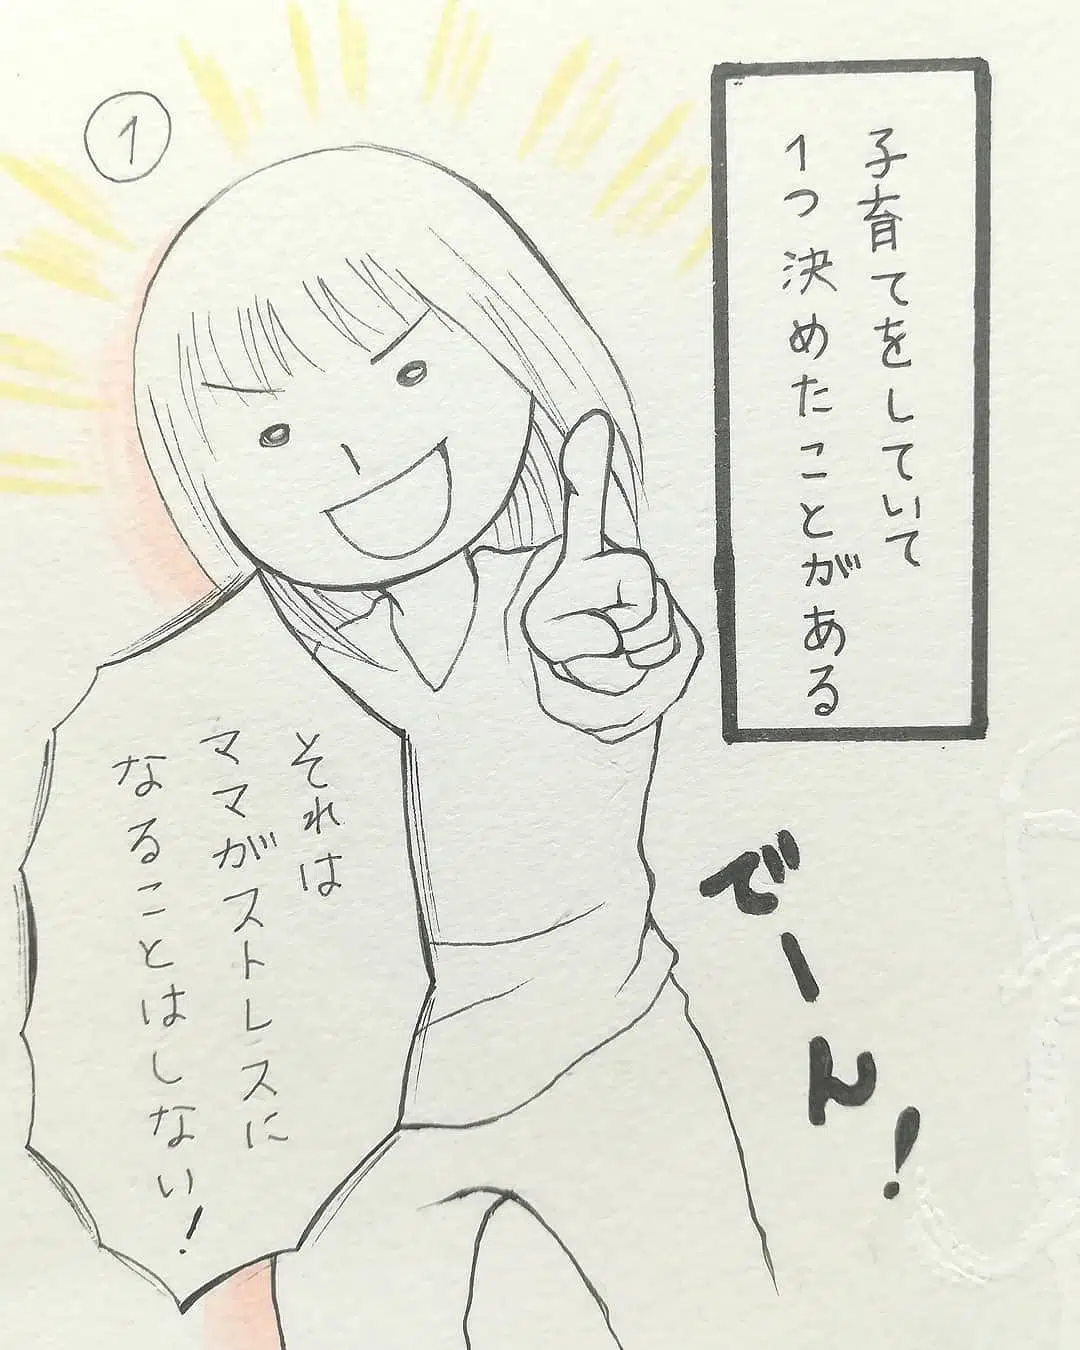 ①
子育てをしていて
1つ決めたことがある
それは
ママがストレスに
なることはしない!
でーん!